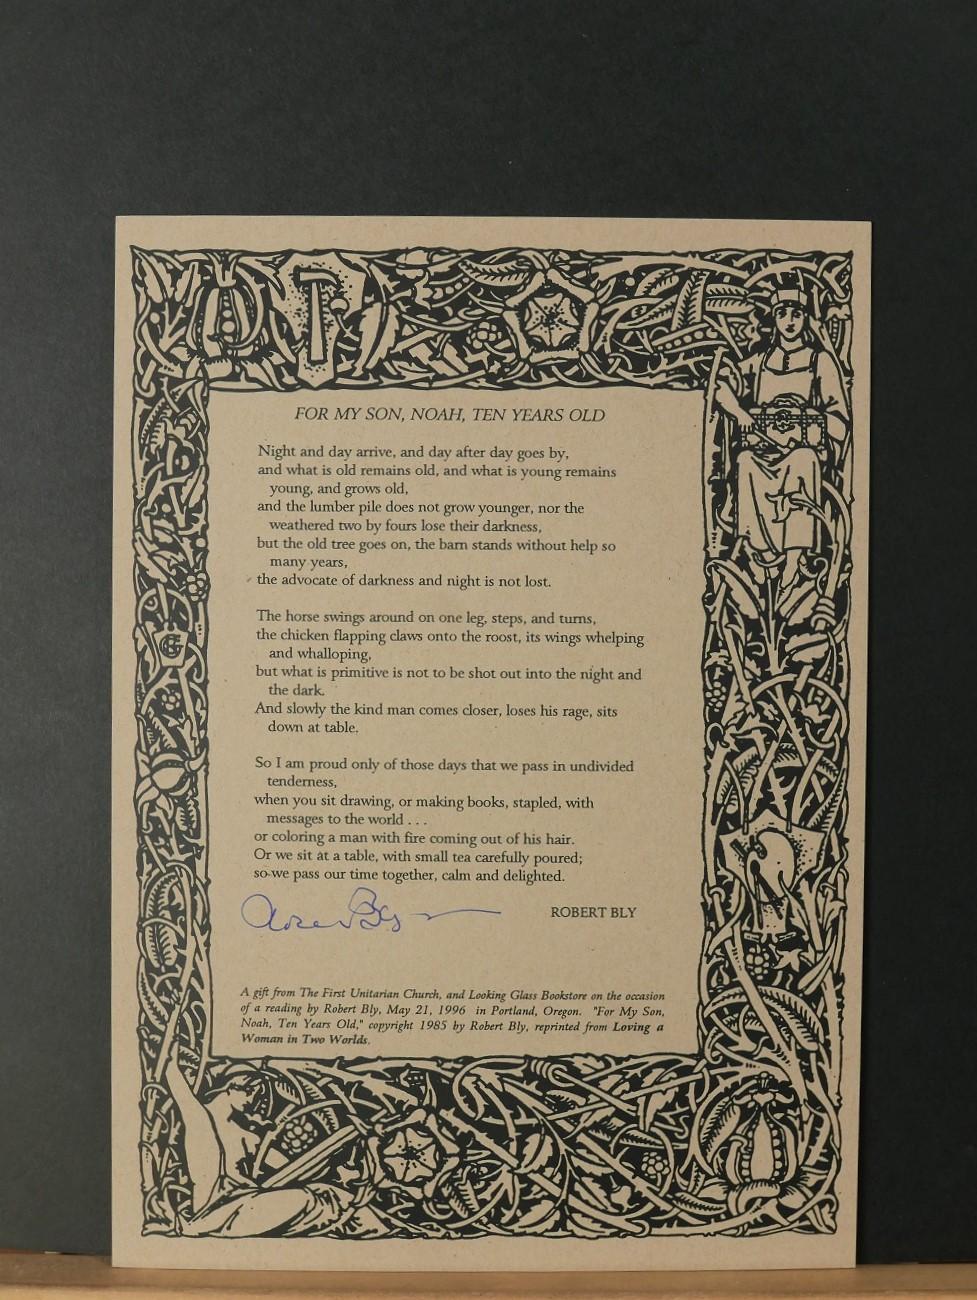 FOR MY SON, NOAH, TEN YEARS OLD
Night and day arrive, and day after day goes by,
and what is old remains old, and what is young remains
young, and grows old,
and the lumber pile does not grow younger, nor the
weathered two by fours lose their darkness,
but the old tree goes on, the barn stands without help so
many years,
the advocate of darkness and night is not lost.
The horse swings around on one leg, steps, and turns,
the chicken flapping claws onto the roost, its wings whelping
and whalloping,
but what is primitive is not to be shot out into the night and
the dark.
And slowly the kind man comes closer, loses his rage, sits
down at table.
So I am proud only of those days that we pass in undivided
tenderness,
when you sit drawing, or making books, stapled, with
messages to the world . . .
or coloring a man with fire coming out of his hair.
Or we sit at a table, with small tea carefully poured;
so we pass our time together, calm and delighted.
Robert Bly
ROBERT BLY
A gift from The First Unitarian Church, and Looking Glass Bookstore on the occasion
of a reading by Robert Bly, May 21, 1996 in Portland, Oregon. "For My Son,
Noah, Ten Years Old," copyright 1985 by Robert Bly, reprinted from Loving a
Woman in Two Worlds.